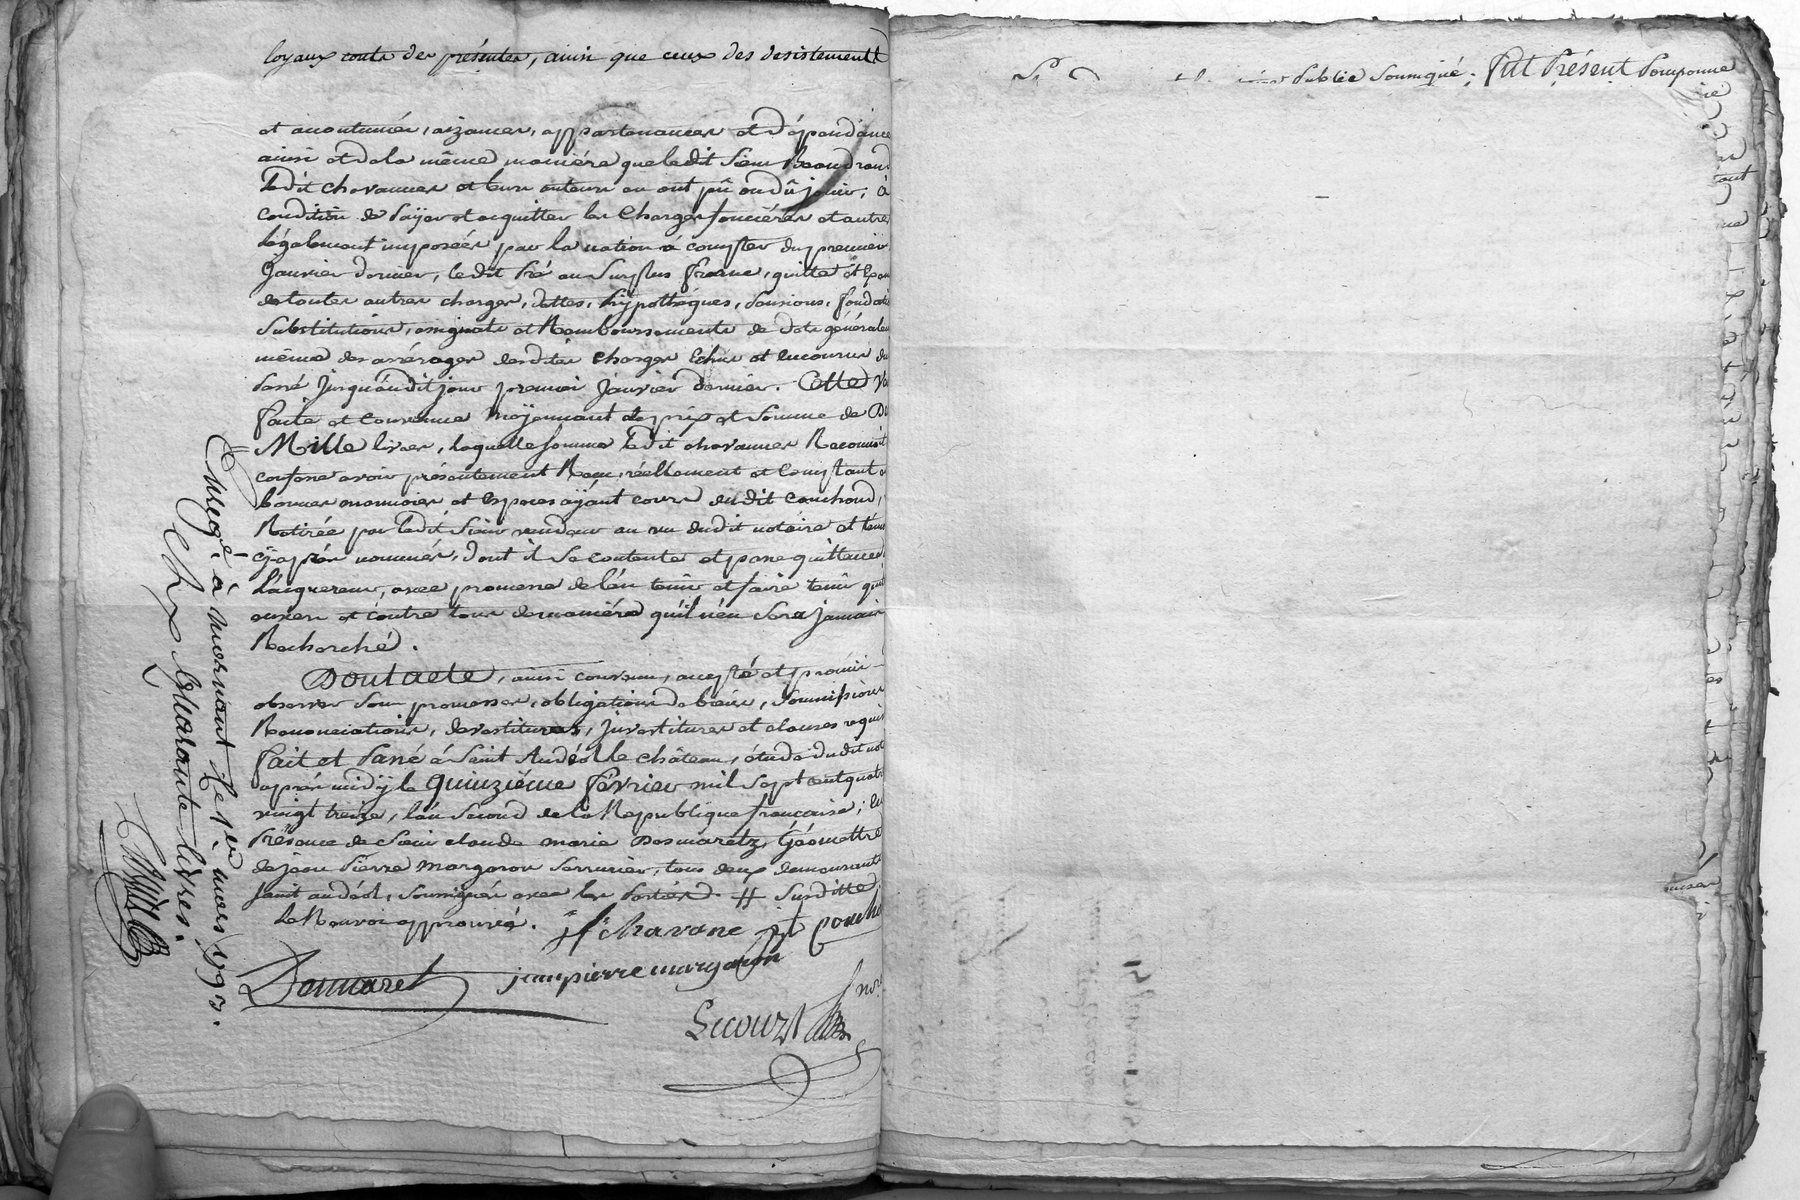 loyaux couts des présentes, ainsi que ceux des desistements
et accoutumés, aizances, appartenances et dépendance
ainsi et de la même maniére que ledit Sieur
ledit chavannes et leurs auteurs en ont pû ou dû jouir; à
condition de payer et acquitter les Charges fonciéres et autre
légalement imposées par la nation à compter du premier
Janvier dernier, ledit Pré au Surplus franc, quitte et
de toutes autres charges, dettes, hypothéques, pensions, fondati
Substitutions, assignats et Remboursements de dots générale
même des arrérages desdites charges Echus et encourus du
Passé jusqu'audit jour premier Janvier dernier. Cette V
faite et Convenue moyennant le prix et Somme de
Mille livres, laquelle somme ledit chavannes Reconnoit
confesse avoir présentement Reçu, réellement et Comptant
bonnes monnoies et Espéces ayant cours dudit couchoud,
Retirée par ledit Sieur vendeur au vu dudit notaire et témo
cy-aprés nommés, dont il se contente et passe quittance
l'acquereur, avec promesse de l'en tenir et faire tenir qui
envers et contre tous de maniére qu'il n'en Sera jamais
Recherché.
Dont acte, ainsi convenu, accepté et promis
observer Sous promesses, obligations de biens, Soumissions
Renonciations, devestitures, Investitures et clauses requis
Fait et Passé à Saint Andéol le château, étude dudit not
aprés midy le quinziéme février mil Sept cent quatr
vingt treize, l'an Second de la Republique françaize; En
Présence de Sieur claude marie Desmaretz, Géomettre
de jean Pierre Margaron Serrurier, tous deux demeurants
saint andéol, soussignés avec les Parties. # Surditte
le Renvoi approuvé. chavane
jean pierre margaron
Enreg.é à mornant le 1er. mars 1793.
Quarante livres.
Public Soussigné; Fut Présent Pomponne